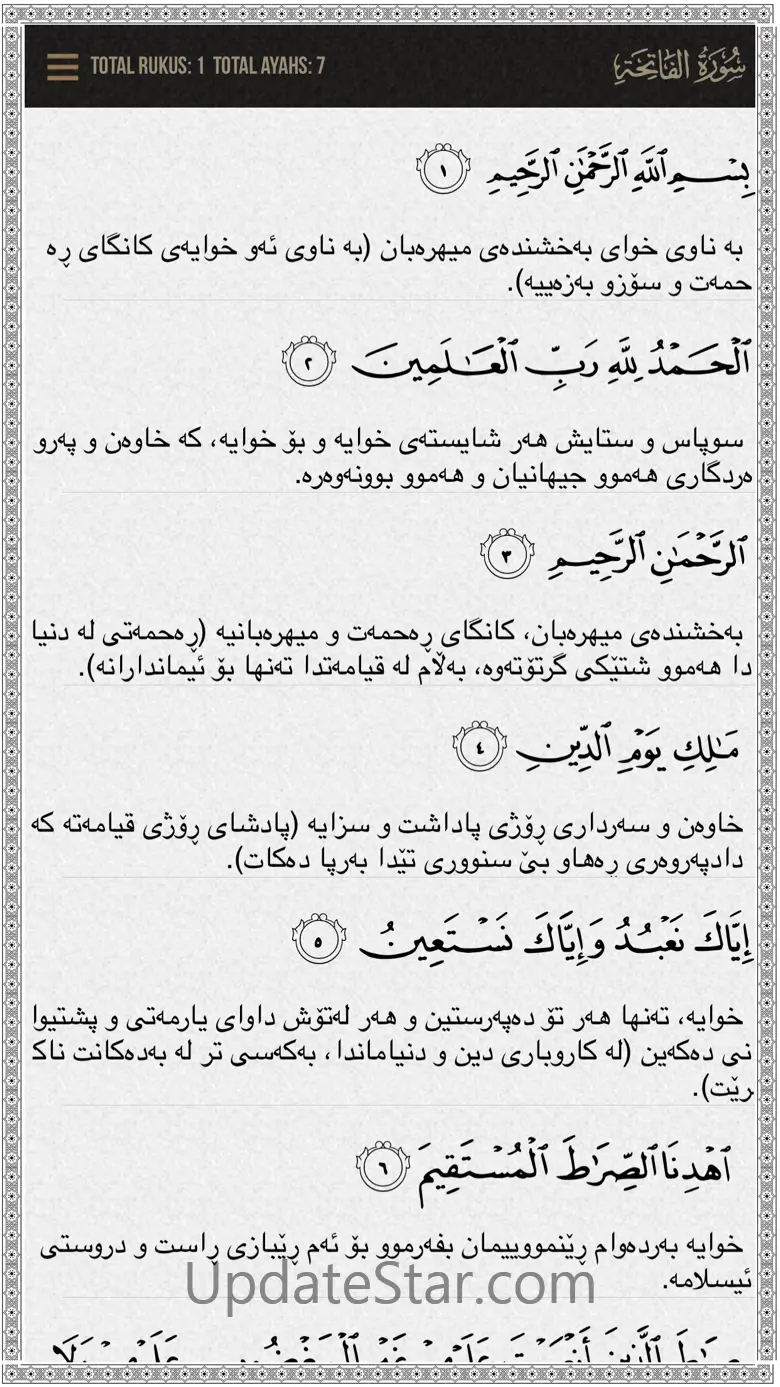 TOTAL RUKUS: 1 TOTAL AYAHS: 7
سُورَةُ الفَاتِحَةِ
بِسۡمِ ٱللَّهِ ٱلرَّحۡمَٰنِ ٱلرَّحِيمِ ١
بە ناوی خوای بەخشندەی میهرەبان (بە ناوی ئەو خوایەی کانگای ڕە
حمەت و سۆزو بەزەییە).
ٱلۡحَمۡدُ لِلَّهِ رَبِّ ٱلۡعَٰلَمِينَ ٢
سوپاس و ستایش هەر شایستەی خوایە و بۆ خوایە، کە خاوەن و پەرو
ەردگاری هەموو جیهانیان و هەموو بوونەوەرە.
ٱلرَّحۡمَٰنِ ٱلرَّحِيمِ ٣
بەخشندەی میهرەبان، کانگای ڕەحمەت و میهرەبانیە (ڕەحمەتی لە دنیا
دا هەموو شتێکی گرتۆتەوە، بەڵام لە قیامەتدا تەنها بۆ ئیماندارانە).
مَٰلِكِ يَوۡمِ ٱلدِّينِ ٤
خاوەن و سەرداری ڕۆژی پاداشت و سزایە (پادشای ڕۆژی قیامەتە کە
دادپەروەری ڕەهاو بێ سنووری تێدا بەرپا دەکات).
إِيَّاكَ نَعۡبُدُ وَإِيَّاكَ نَسۡتَعِينُ ٥
خوایە، تەنها هەر تۆ دەپەرستین و هەر لەتۆش داوای یارمەتی و پشتیوا
نی دەکەین (لە کاروباری دین و دنیاماندا، بەکەسی تر لە بەدەکانت ناک
رێت).
ٱهۡدِنَا ٱلصِّرَٰطَ ٱلۡمُسۡتَقِيمَ ٦
خوایە بەردەوام ڕێنموووییمان بفەرموو بۆ ئەم ڕێبازی ڕاست و دروستی
ئیسلامە.
UpdateStar.com